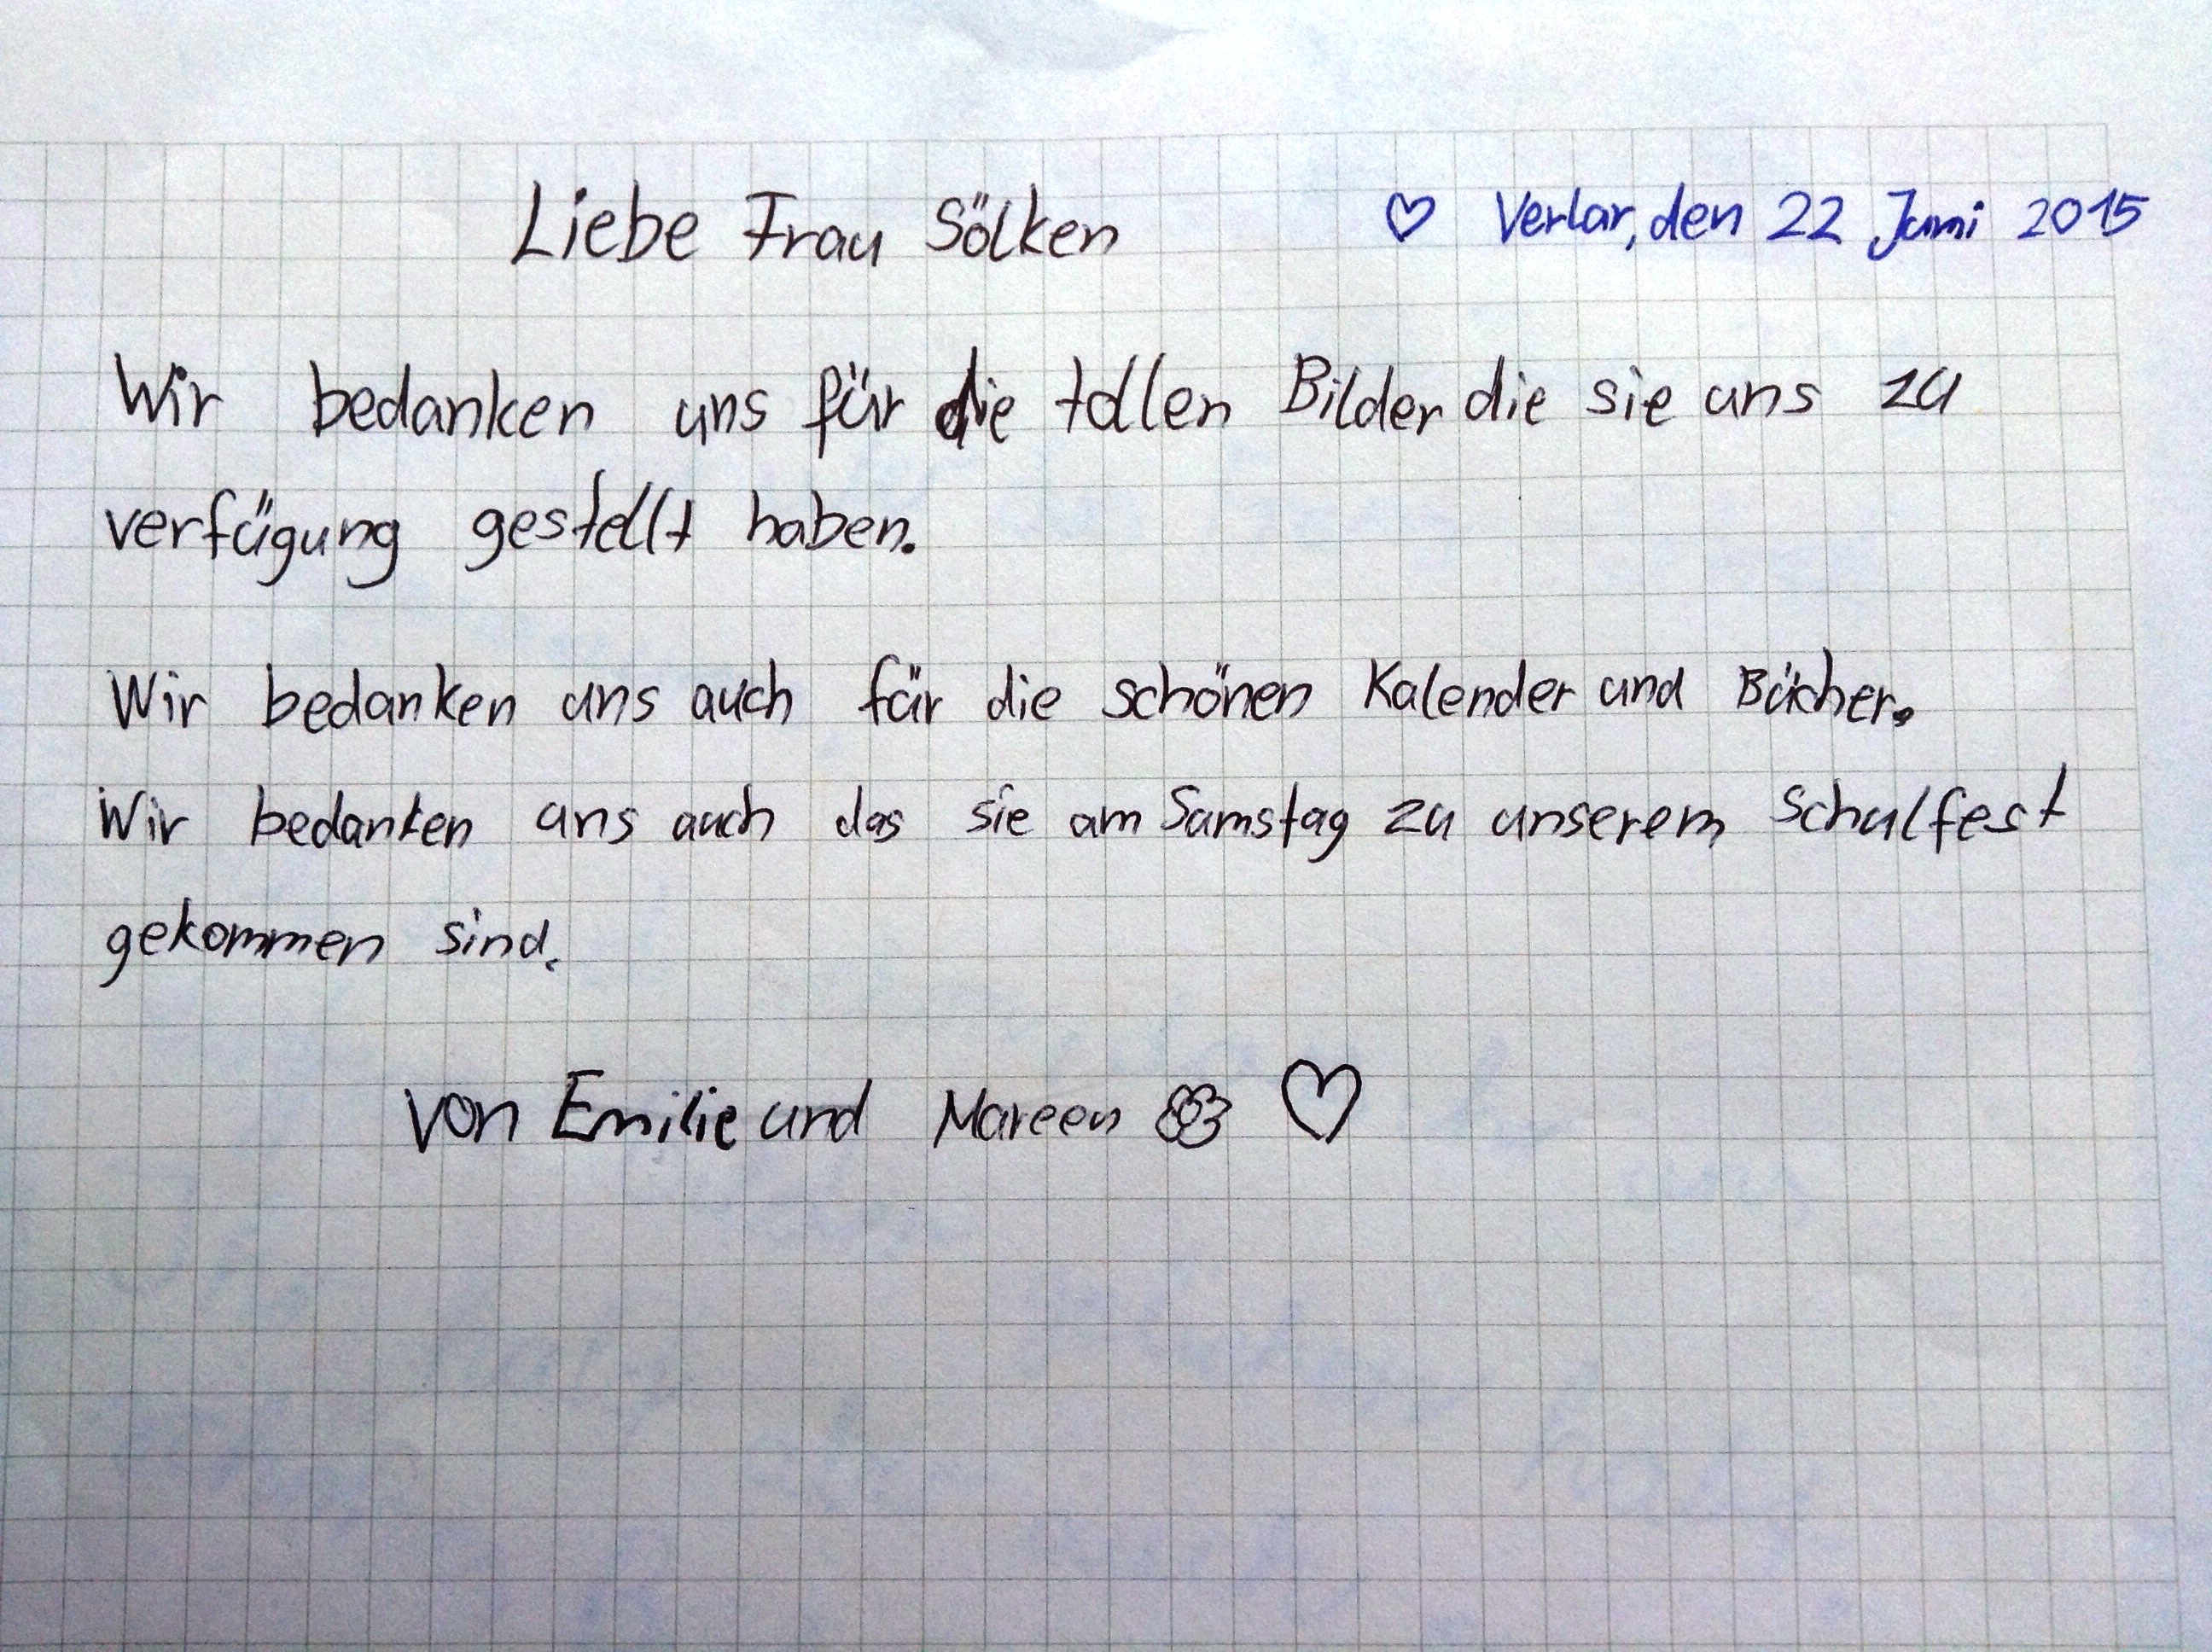 Liebe Frau Sölken ♡ Verlar, den 22 Juni 2015
Wir bedanken uns für die tollen Bilder die sie uns zu
verfügung gestellt haben.
Wir bedanken uns auch für die schönen Kalender und Bücher.
Wir bedanken uns auch das sie am Samstag zu unserem Schulfest
gekommen sind.
von Emilie und Mareen ♡